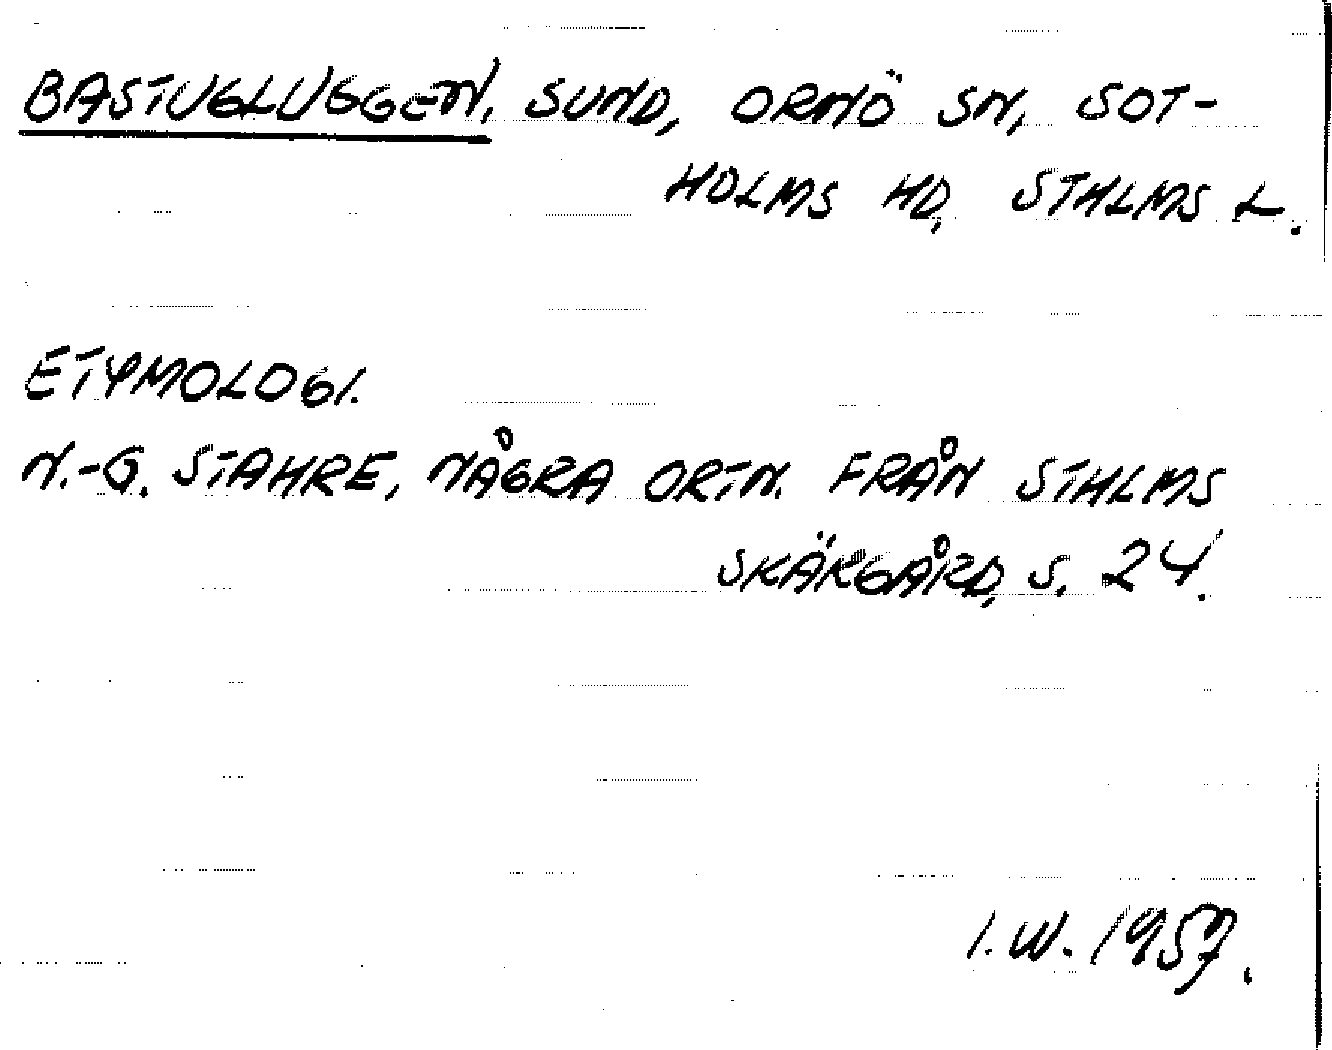 BASTUGLUGGEN, SUND, ORNÖ SN, SOT-
HOLMS HD, STHLMS L.
ETYMOLOGI.
N.-G. STAHRE, NÅGRA ORTN. FRÅN STHLMS
SKÄRGÅRD, S. 24.
I.W. 1957.